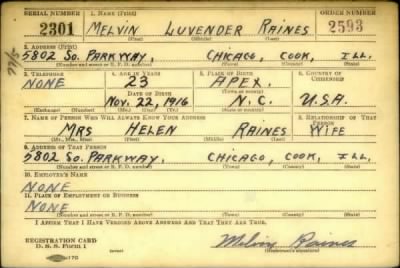 SERIAL NUMBER 1. NAME (Print) ORDER NUMBER
2301 MELVIN LUVENDER RAINES 2593
(First) (Middle) (Last)
2. ADDRESS (Print)
5802 SO. PARKWAY, CHICAGO, COOK, ILL.
(Number and street or R. F. D. number) (Town) (County) (State)
3. TELEPHONE 4. AGE IN YEARS 5. PLACE OF BIRTH 6. COUNTRY OF CITIZENSHIP
NONE 23 APEX,
DATE OF BIRTH (Town or county)
NOV. 22, 1916 N.C. U.S.A.
(Exchange) (Number) (Mo.) (Day) (Yr.) (State or country)
7. NAME OF PERSON WHO WILL ALWAYS KNOW YOUR ADDRESS 8. RELATIONSHIP OF THAT PERSON
MRS HELEN RAINES WIFE
(Mr., Mrs., Miss) (First) (Middle) (Last)
9. ADDRESS OF THAT PERSON
5802 SO. PARKWAY, CHICAGO, COOK, ILL,
(Number and street or R. F. D. number) (Town) (County) (State)
10. EMPLOYER'S NAME
NONE
11. PLACE OF EMPLOYMENT OR BUSINESS
NONE
(Number and street or R. F. D. number) (Town) (County) (State)
I AFFIRM THAT I HAVE VERIFIED ABOVE ANSWERS AND THAT THEY ARE TRUE.
REGISTRATION CARD
D. S. S. Form 1
Melvin Raines
(Registrant's signature)